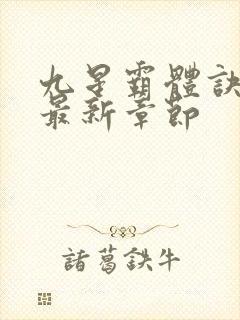 九星霸體訣
最新章節
諸葛鉄牛